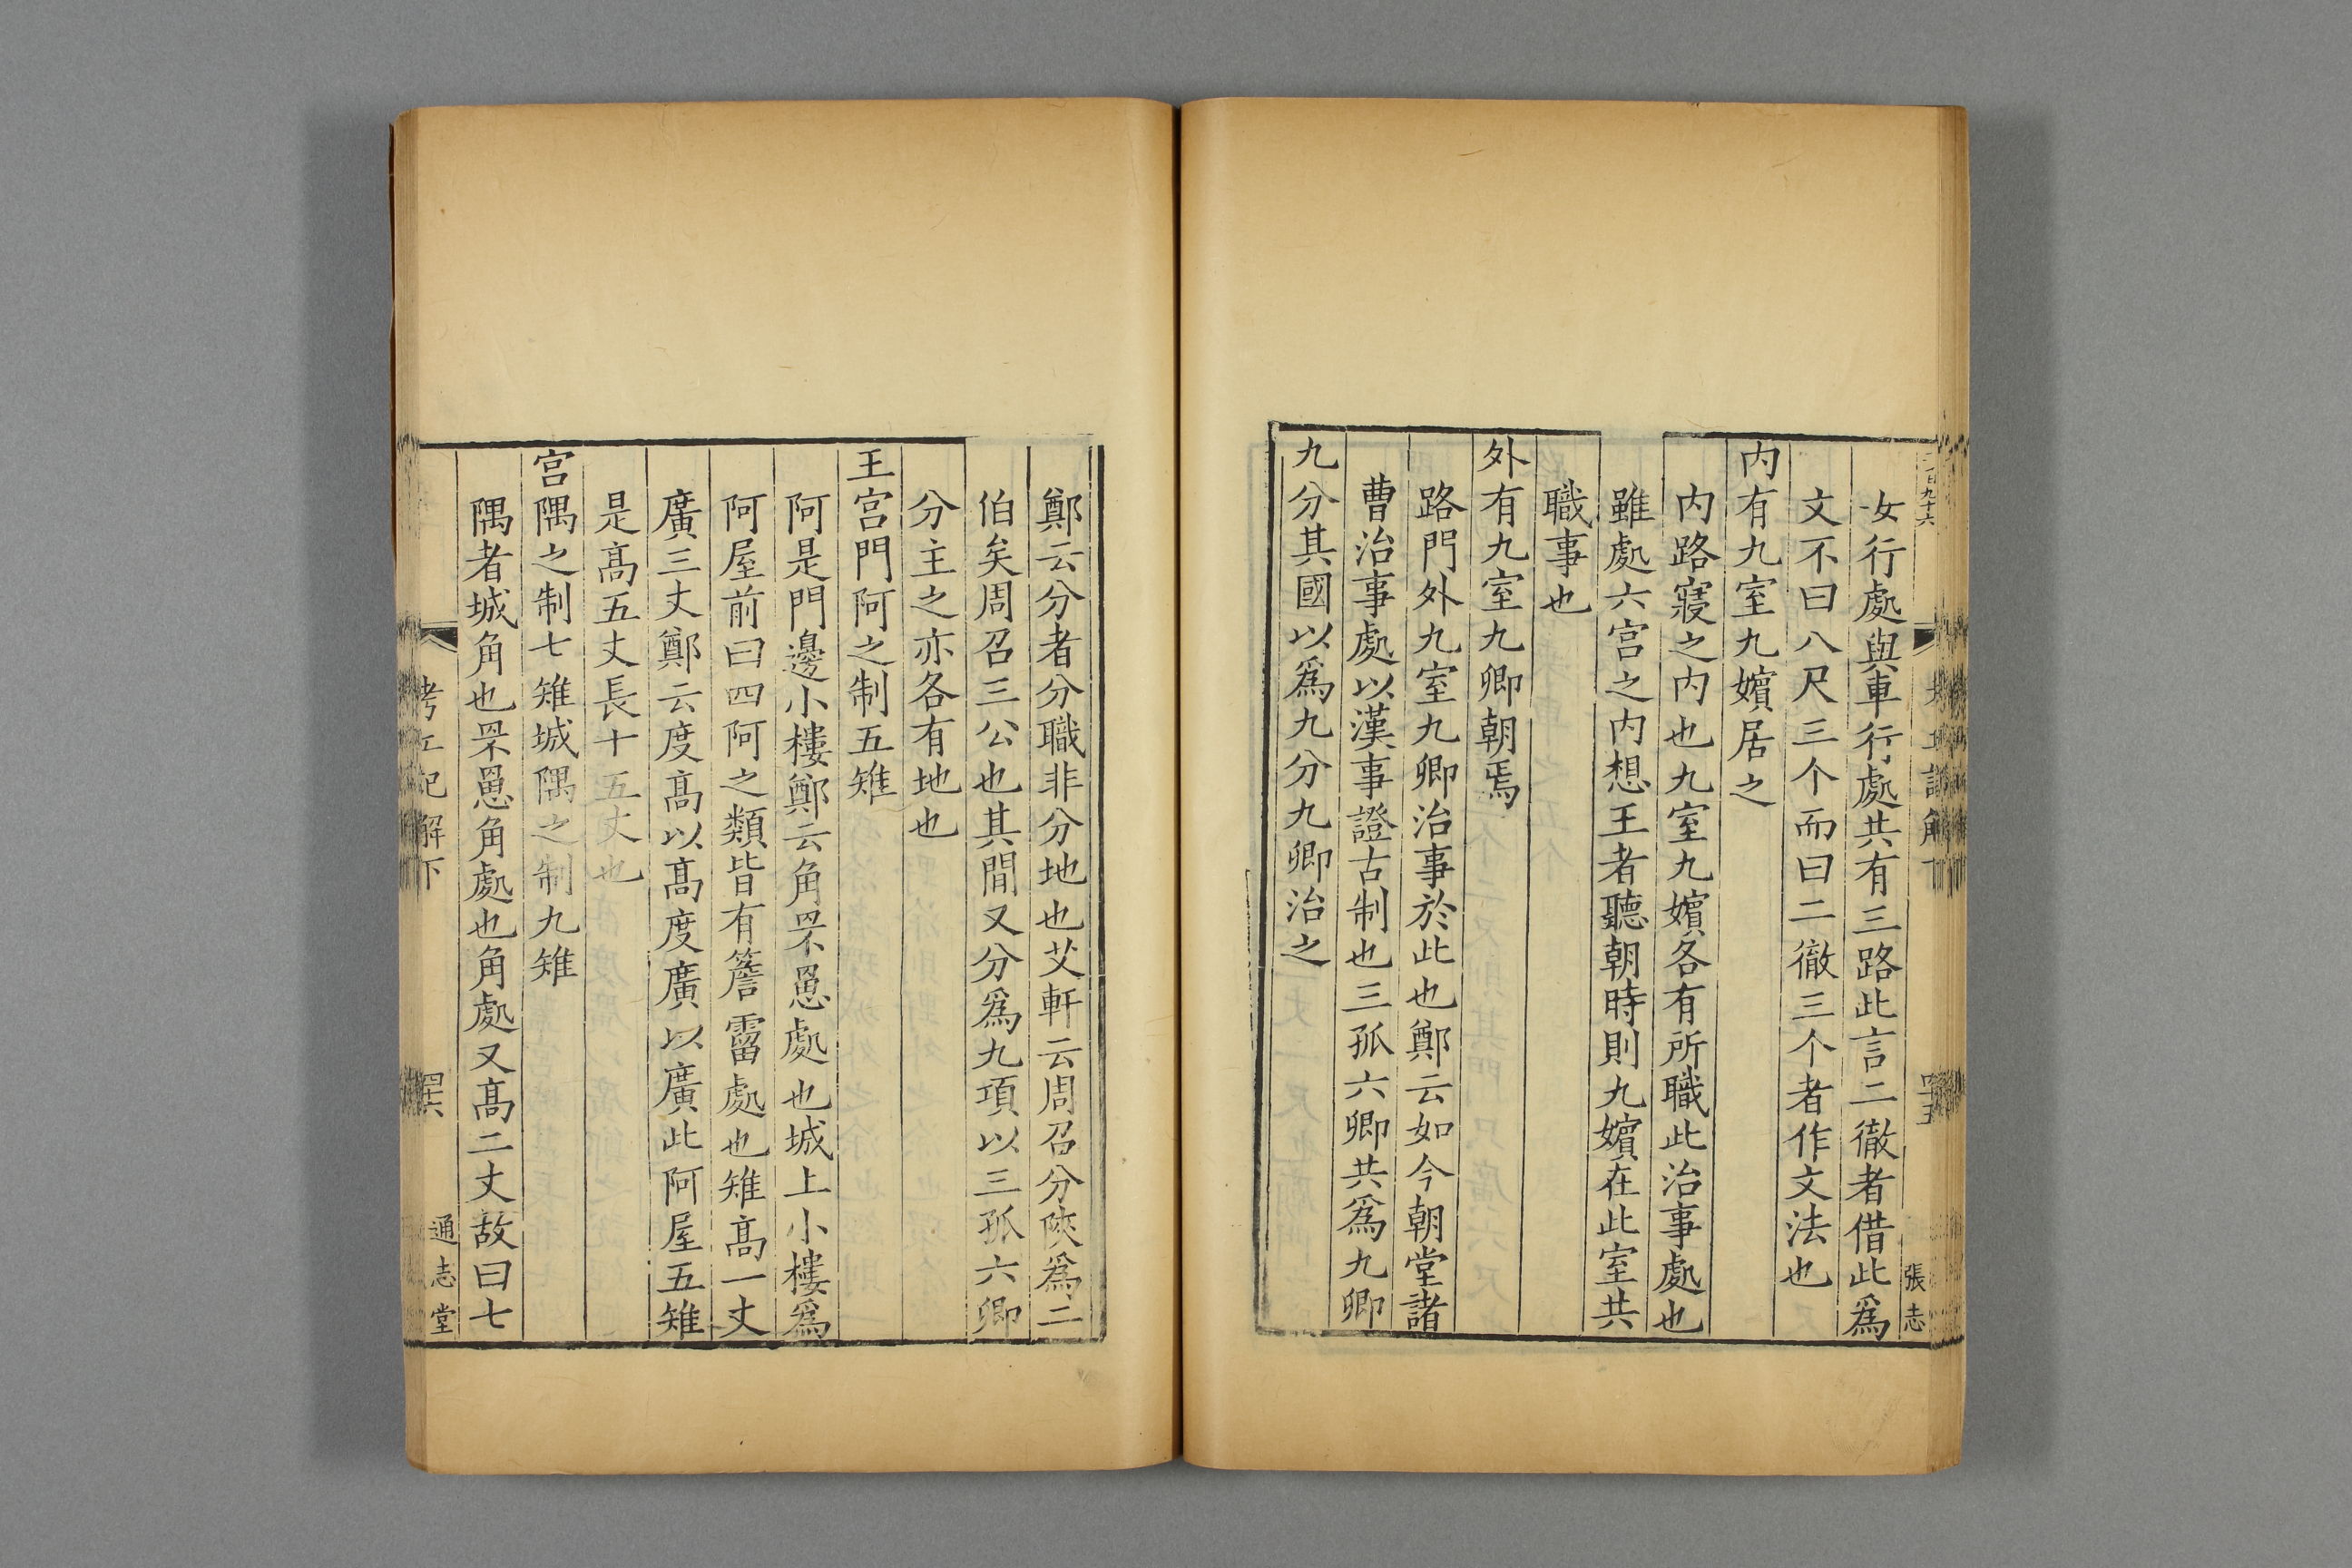 女行處與車行處共有三路此言二徹者借此爲
文不曰八尺三个而曰二徹三个者作文法也
内有九室九嬪居之
内路寢之内也九室九嬪各有所職此治事處也
雖處六宮之内想王者聽朝時則九嬪在此室共
職事也
外有九室九卿朝焉
路門外九室九卿治事於此也鄭云如今朝堂諸
曹治事處以漢事證古制也三孤六卿共爲九卿
九分其國以爲九分九卿治之
張志
鄭云分者分職非分地也艾軒云周召分陜爲二
伯矣周召三公也其間又分爲九項以三孤六卿
分主之亦各有地也
王宮門阿之制五雉
阿是門邊小樓鄭云角罘罳處也城上小樓爲
阿屋前曰四阿之類皆有簷霤處也雉高一丈
廣三丈鄭云度高以高度廣以廣此阿屋五雉
是高五丈長十五丈也
宮隅之制七雉城隅之制九雉
隅者城角也罘罳角處也角處又高二丈故曰七
考工記解下
通志堂